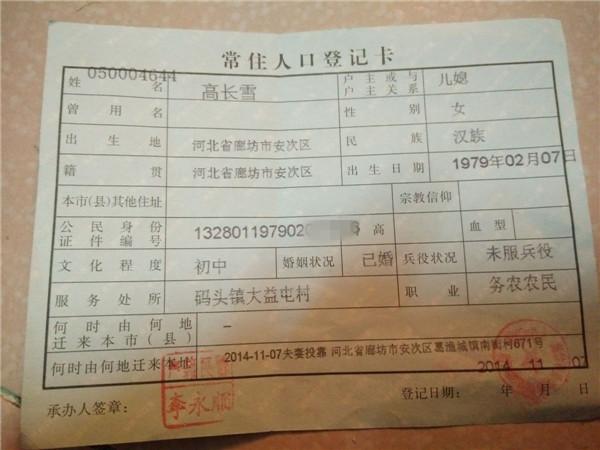 常住人口登记卡
050004644
姓名 高长雪 户主或与户主关系 儿媳
曾用名 性别 女
出生地 河北省廊坊市安次区 民族 汉族
籍贯 河北省廊坊市安次区 出生日期 1979年02月07日
本市(县)其他住址 宗教信仰
公民身份证件编号 132801197902 6 高 血型
文化程度 初中 婚姻状况 已婚 兵役状况 未服兵役
服务处所 码头镇大益屯村 职业 务农农民
何时由何地迁来本市(县) -
何时由何地迁来本址 2014-11-07夫妻投靠 河北省廊坊市安次区葛渔城镇南街村671号
2014 11 07
承办人签章： 登记日期： 年 月 日
李永顺